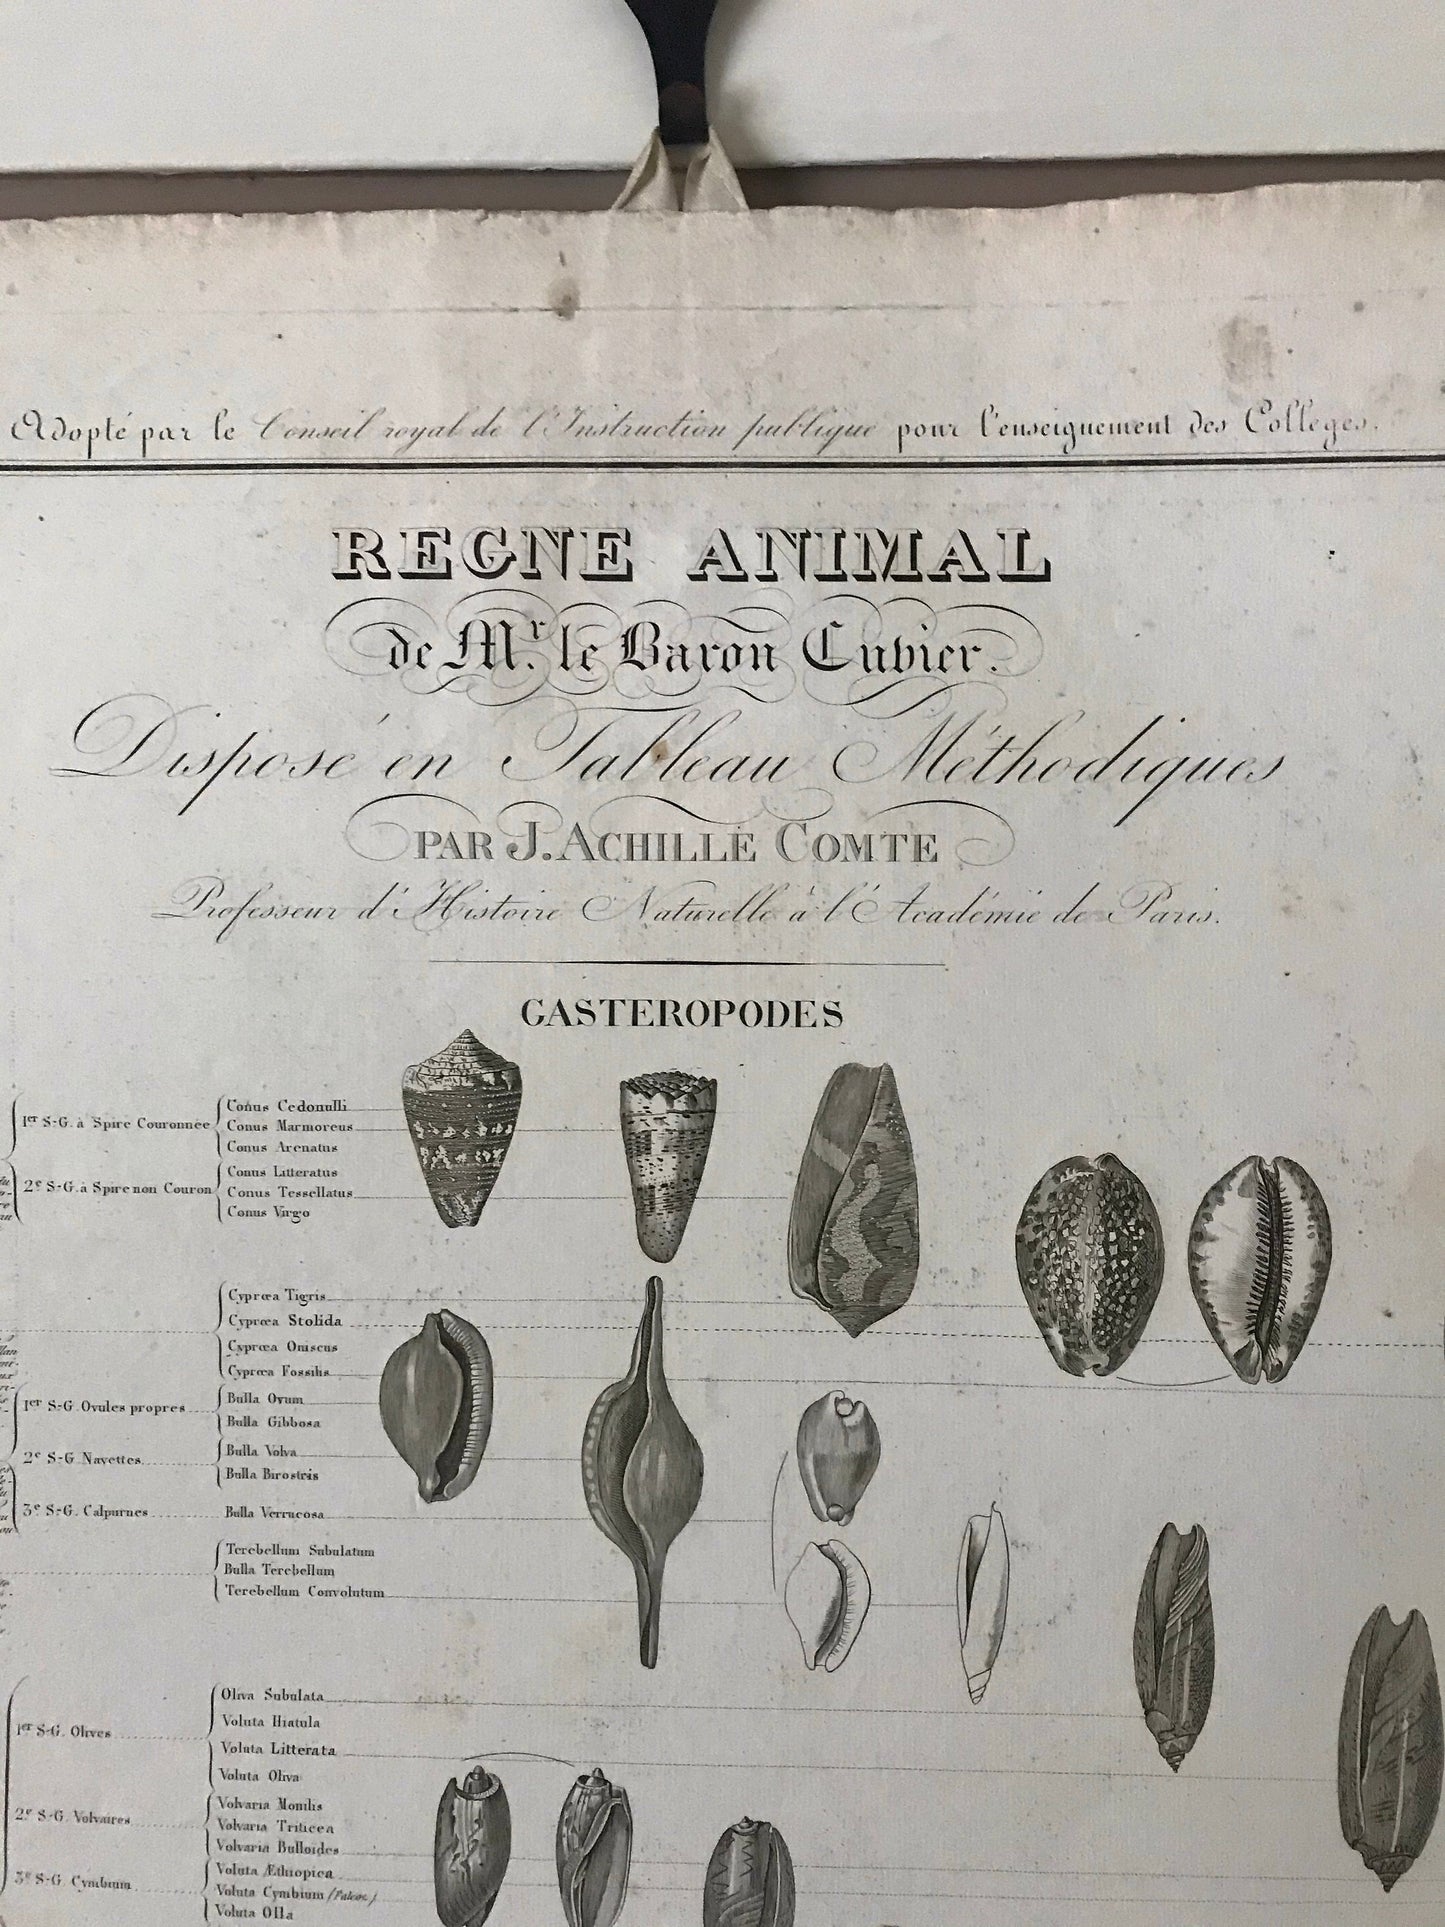 Adopté par le Conseil royal de l'Instruction publique pour l'enseignement des Colleges.
REGNE ANIMAL
de Mr. le Baron Cuvier.
Disposé en Tableau Méthodiques
PAR J. ACHILLE COMTE
Professeur d'Histoire Naturelle à l'Académie de Paris.
GASTEROPODES
1er S-G. à Spire Couronnée
Conus Cedonulli
Conus Marmoreus
Conus Arenatus
2e S-G. à Spire non Couron
Conus Litteratus
Conus Tessellatus
Conus Virgo
Cypræa Tigris
Cypræa Stolida
Cypræa Oniscus
Cypræa Fossilis
1er S-G. Ovules propres
Bulla Ovum
Bulla Gibbosa
2e S-G. Navettes
Bulla Volva
Bulla Birostris
3e S-G. Calpurnes
Bulla Verrucosa
Terebellum Subulatum
Bulla Terebellum
Terebellum Convolutum
1er S-G. Olives
Oliva Subulata
Voluta Hiatula
Voluta Litterata
Voluta Oliva
2e S-G. Volvaires
Volvaria Monilis
Volvaria Triticea
Volvaria Bulloides
3e S-G. Cymbium
Voluta Æthiopica
Voluta Cymbium
Voluta Olla